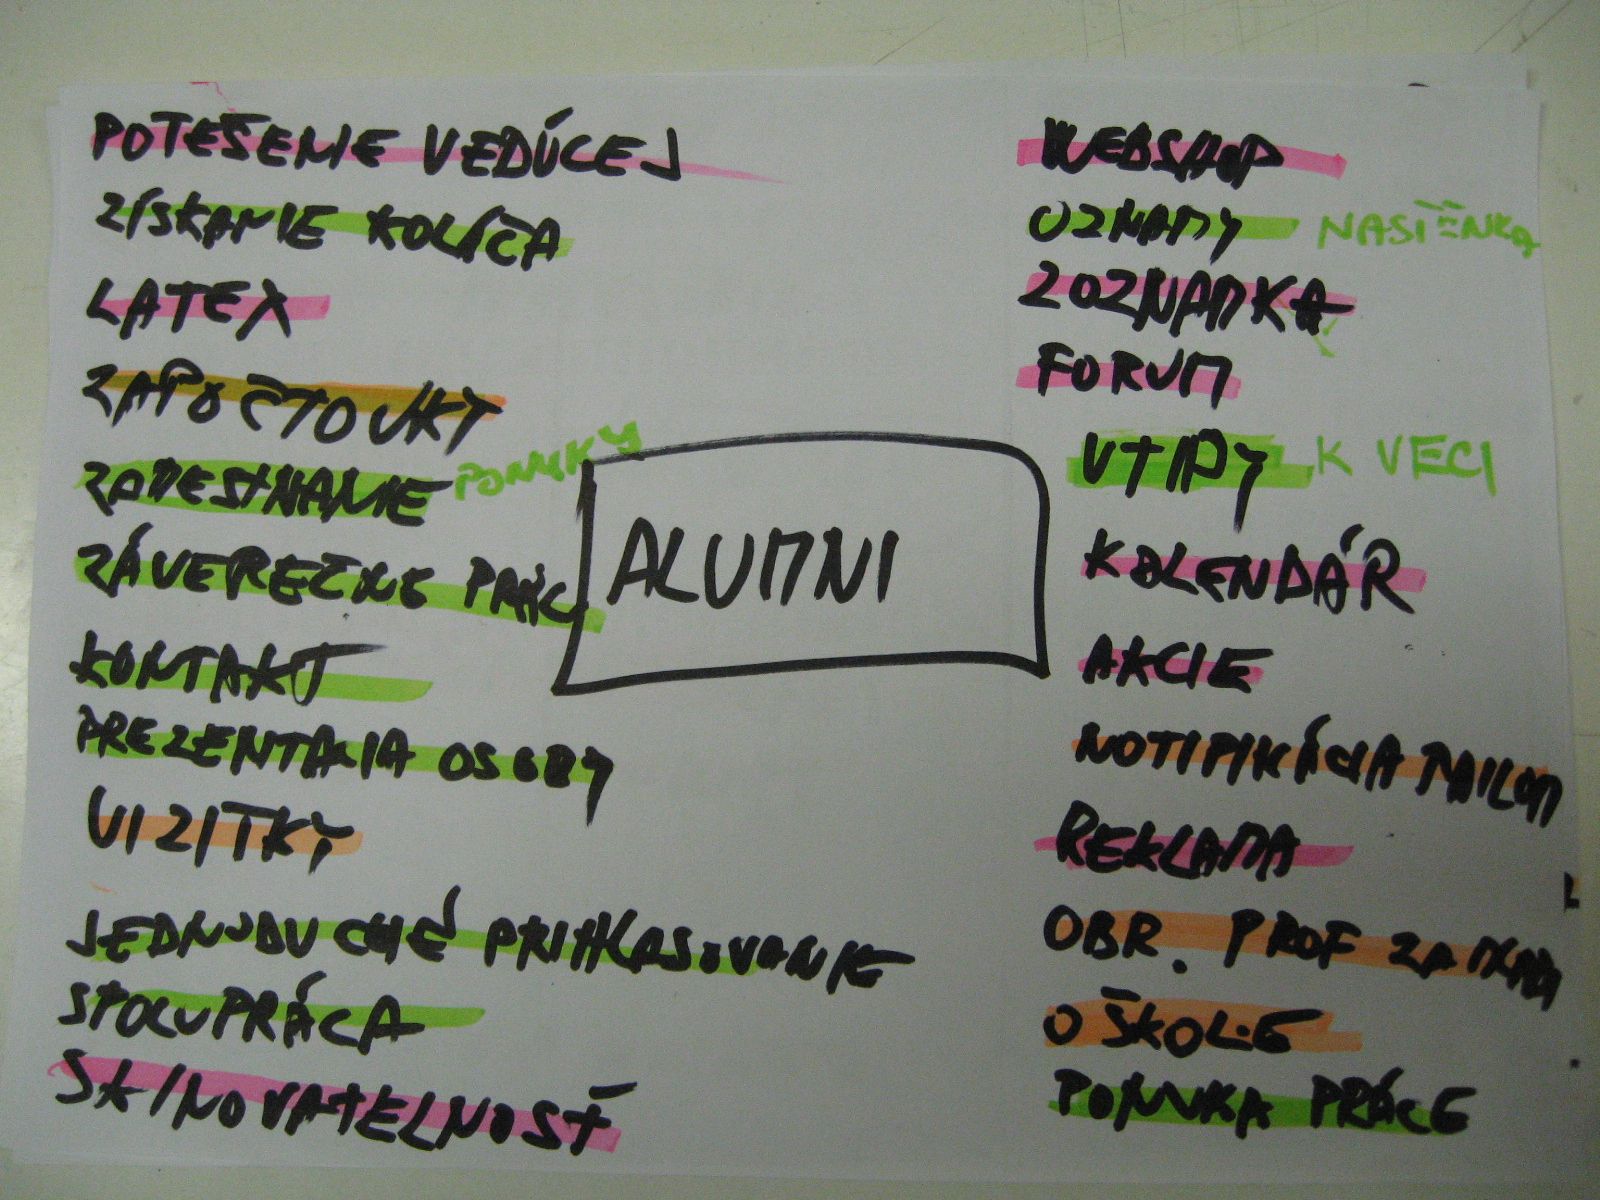 POTEŠENIE VEDÚCEJ
ZÍSKANIE KOLÍČA
LATEX
ZÁPOČTOVKY
ZAMESTNANIE PONUKY
ZÁVEREČNE PRÁC
KONTAKT
PREZENTACIA OSOBY
VIZITKY
JEDNODUCHÉ PRIHLASOVANIE
SPOLUPRÁCA
SKINOVATELNOSŤ
ALUMNI
WEBSHOP
OZNAMY NASTĚNKA
ZOZNAMKA
FORUM
VTIPY K VECI
KALENDÁR
AKCIE
NOTIFIKÁCIA MAILOM
REKLAMA
OBR. PROF
O ŠKOLE
PONUKA PRÁCE